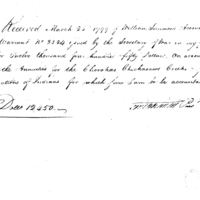 Received March 20 1799 of William Simmons Accou
Warrant No 3224 issued by the Secretary of War in my f
for Twelve thousand four hundred fifty Dollars. On accou
the Annuities for the Cherokee Chickasaw Creeks
nations of Indians for which sum I am to be accounta
Dolls 12450.